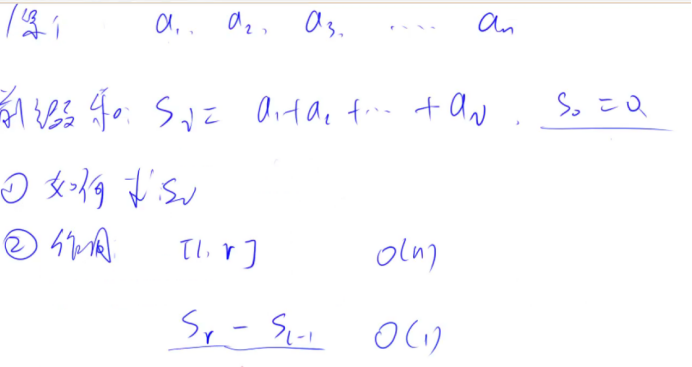 a₁, a₂, a₃, .... aₙ
前缀和: Sᵢ = a₁+a₂+...+aᵢ. S₀ = 0
① 如何求Sᵢ
② 作用 [l, r] O(n)
Sᵣ - Sₗ₋₁ O(1)